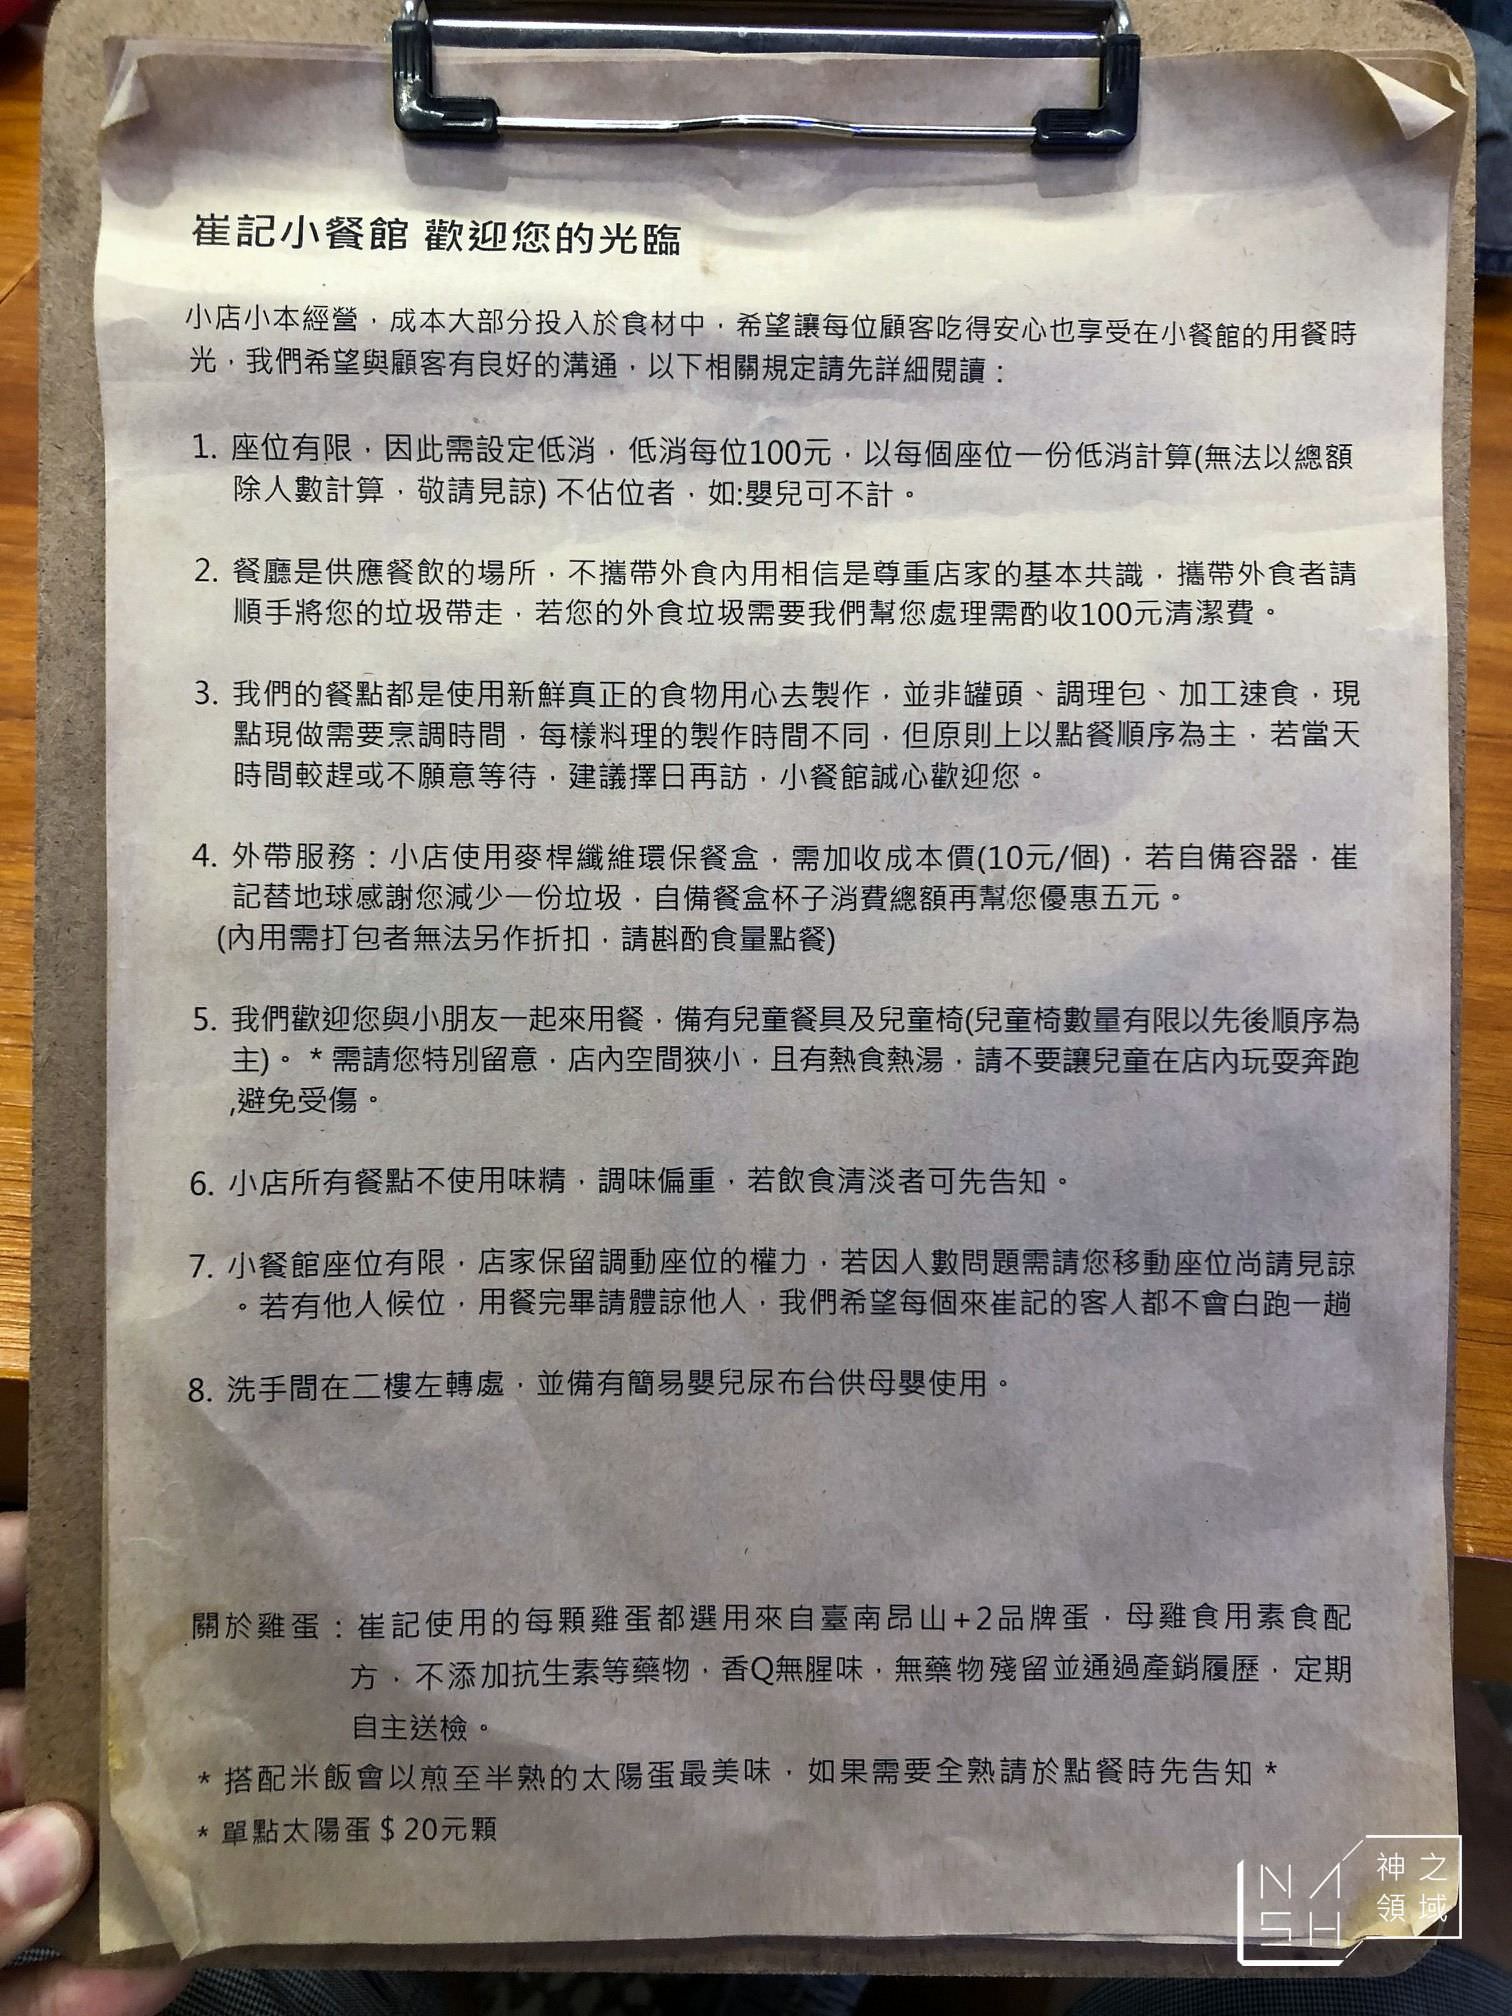 崔記小餐館 歡迎您的光臨
小店小本經營，成本大部分投入於食材中，希望讓每位顧客吃得安心也享受在小餐館的用餐時
光，我們希望與顧客有良好的溝通，以下相關規定請先詳細閱讀：
1. 座位有限，因此需設定低消，低消每位100元，以每個座位一份低消計算(無法以總額
除人數計算，敬請見諒) 不佔位者，如:嬰兒可不計。
2. 餐廳是供應餐飲的場所，不攜帶外食內用相信是尊重店家的基本共識，攜帶外食者請
順手將您的垃圾帶走，若您的外食垃圾需要我們幫您處理需酌收100元清潔費。
3. 我們的餐點都是使用新鮮真正的食物用心去製作，並非罐頭、調理包、加工速食，現
點現做需要烹調時間，每樣料理的製作時間不同，但原則上以點餐順序為主，若當天
時間較趕或不願意等待，建議擇日再訪，小餐館誠心歡迎您。
4. 外帶服務：小店使用麥桿纖維環保餐盒，需加收成本價(10元/個)，若自備容器，崔
記替地球感謝您減少一份垃圾，自備餐盒杯子消費總額再幫您優惠五元。
(內用需打包者無法另作折扣，請斟酌食量點餐)
5. 我們歡迎您與小朋友一起來用餐，備有兒童餐具及兒童椅(兒童椅數量有限以先後順序為
主)。 * 需請您特別留意，店內空間狹小，且有熱食熱湯，請不要讓兒童在店內玩耍奔跑
,避免受傷。
6. 小店所有餐點不使用味精，調味偏重，若飲食清淡者可先告知。
7. 小餐館座位有限，店家保留調動座位的權力，若因人數問題需請您移動座位尚請見諒
。若有他人候位，用餐完畢請體諒他人，我們希望每個來崔記的客人都不會白跑一趟
8. 洗手間在二樓左轉處，並備有簡易嬰兒尿布台供母嬰使用。
關於雞蛋：崔記使用的每顆雞蛋都選用來自臺南昂山+2品牌蛋，母雞食用素食配
方，不添加抗生素等藥物，香Q無腥味，無藥物殘留並通過產銷履歷，定期
自主送檢。
* 搭配米飯會以煎至半熟的太陽蛋最美味，如果需要全熟請於點餐時先告知 *
* 單點太陽蛋＄20元顆
NASH
神之
領域